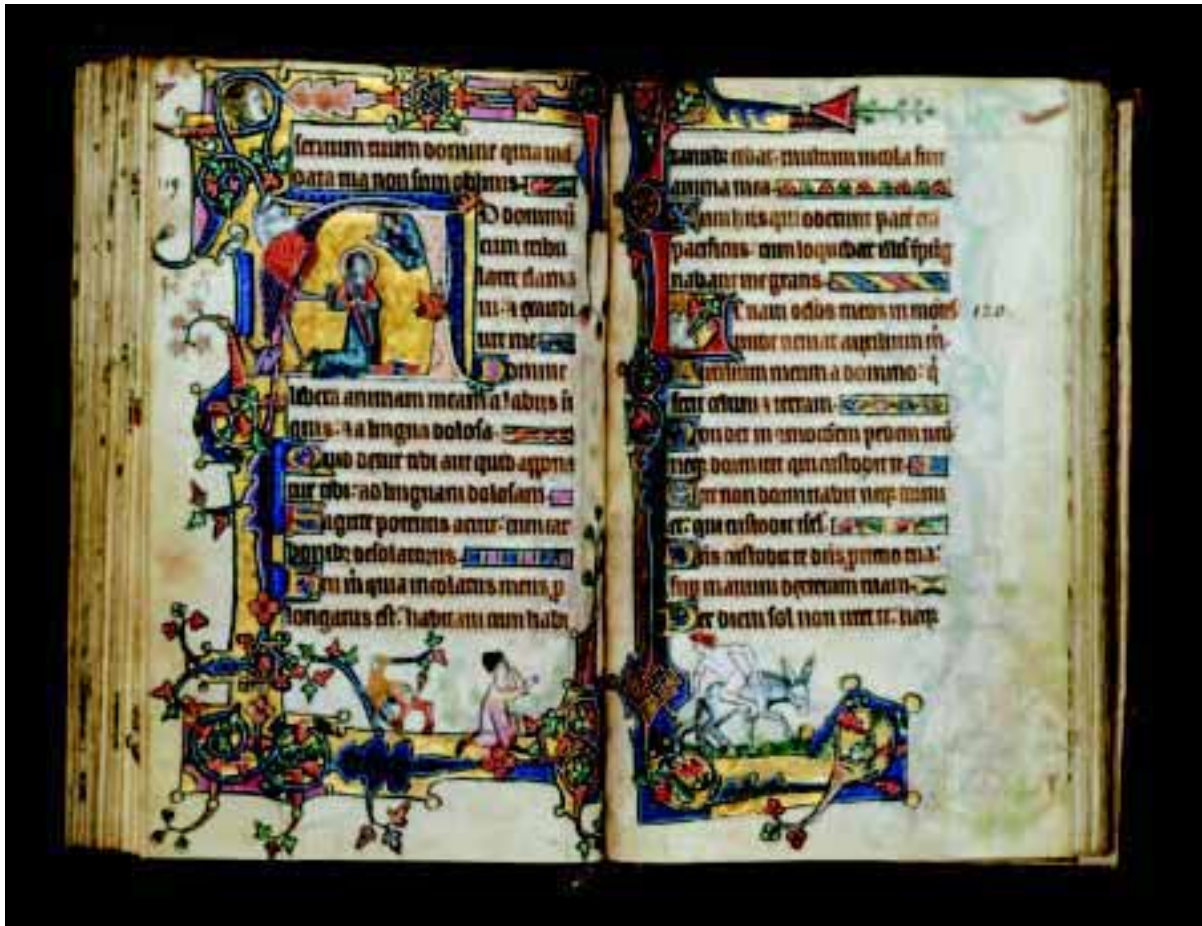 seruum tuum domine quia man
data tua non sum oblitus
119
AD dominū
cum tribu
larer clama
ui · ⁊ exaudi
uit me
Domine
libera animam meam a labijs in
iquis : ⁊ a lingua dolosa
Quid detur tibi aut quid appona
tur tibi : ad linguam dolosam
Sagitte potentis acute : cum car
bonibꝫ desolatorijs
Heu m̄ quia incolatus meus p
longatus est : habitaui cum habi
tantibꝫ cedar : multum incola fuit
anima mea
Cum hiis qui oderunt pacē erā
pacificus : cum loquebar illis īpug
nabant me gratis
Leuaui oculos meos in montes 120
unde ueniet auxilium m̄
Auxilium meum a domino : q̄
fecit celum ⁊ terram
Non det in cōmotōem pedem tuū
neqꝫ dormitet qui custodit te
Ecce non dormitabit neqꝫ dormi
et : qui custodit isrł
Dn̄s custodit te dn̄s ꝓtectio tua :
sup manum dexteram tuam
Per diem sol non uret te : neqꝫ